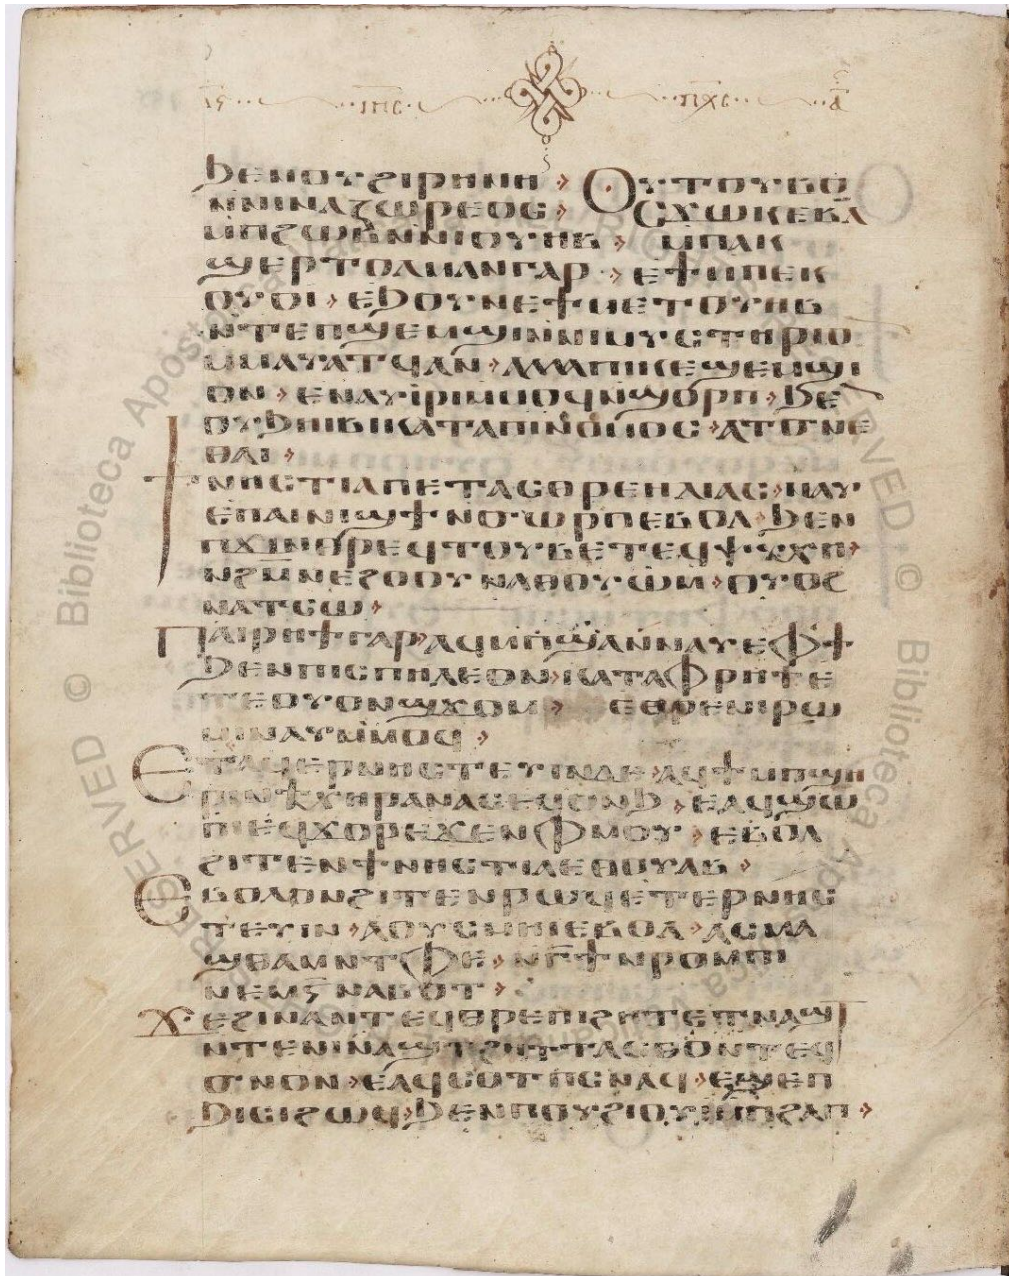 ⲓ̅ⲥ̅ ⲓⲏⲥ ⲡⲭⲥ ⲁ̅
ϧⲉⲛⲟⲩϩⲓⲣⲏⲛⲏ Ⲟⲩⲧⲟⲩⲃⲟ
ⲛ̀ⲛⲓⲛⲁⲍⲱⲣⲉⲟⲥ ⲟⲥϫⲱⲕⲉⲃⲗ
ⲙ̀ⲡϩⲱⲃⲛ̀ⲛⲓⲟⲩⲏⲃ ⲙ̀ⲡⲁⲕ
ϣⲉⲣⲧⲟⲗⲙⲁⲛⲅⲁⲣ ⲉϯⲙⲡⲉⲕ
ⲟⲩⲟⲓ ⲉϧⲟⲩⲛⲉϯⲙⲉⲧⲟⲩⲏⲃ
ⲛ̀ⲧⲉⲡϣⲉⲙϣⲓⲛ̀ⲛⲓⲙⲩⲥⲧⲏⲣⲓⲟ
ⲙ̀ⲙⲁⲩⲁⲧϥⲁⲛ ⲁⲗⲗⲁⲡⲓⲕⲉϣⲉⲙϣⲓ
ⲟⲛ ⲉⲛⲁⲩⲓ̀ⲣⲓⲙ̀ⲙⲟϥⲛ̀ϣⲟⲣⲡ ϧⲉ
ⲟⲩϧⲏⲓⲃⲓⲕⲁⲧⲁⲡⲓⲛⲟⲙⲟⲥ ⲁⲧϭⲛⲉ
ⲑⲁⲓ
ϯⲛⲏⲥⲧⲓⲁⲡⲉⲧⲁⲥⲑⲣⲉⲏⲗⲓⲁⲥ ⲛⲁⲩ
ⲉⲡⲁⲓⲛⲓϣϯⲛϭⲱⲣⲡⲉⲃⲟⲗ ϧⲉⲛ
ⲡϫⲓⲛⲑⲣⲉϥⲧⲟⲩⲃⲉⲧⲉϥⲯⲩⲭⲏ
ⲛϩⲙⲛⲉϩⲟⲟⲩ ⲛⲁⲑⲟⲩⲱⲙ ⲟⲩⲟϩ
ⲛⲁⲧⲥⲱ
Ⲡⲁⲓⲣⲏϯⲅⲁⲣ ⲁϥⲙⲡ̀ϣⲁⲛ̀ⲛⲁⲩⲉⲫϯ
ϧⲉⲛⲡⲓⲥⲡⲏⲗⲉⲟⲛ ⲕⲁⲧⲁⲫⲣⲏϯⲉ
ⲧⲉⲟⲩⲟⲛϣϫⲟⲙ ⲉⲑⲣⲉⲛⲓⲣⲱ
ⲙⲓⲛⲁⲩⲙ̀ⲙⲟϥ
Ⲉⲧⲁϥⲉⲣⲛⲏⲥⲧⲉⲩⲓⲛⲇⲉ ⲁϥϯⲙⲡϣⲏ
ⲣⲓⲛϯⲭⲏⲣⲁⲛⲁⲥⲉϥⲟⲛϧ ⲉⲁϥϣⲱ
ⲡⲓⲉϥϫⲟⲣⲉϫⲉⲛⲫⲙⲟⲩ ⲉⲃⲟⲗ
ϩⲓⲧⲉⲛϯⲛⲏⲥⲧⲓⲁⲉⲑⲟⲩⲁⲃ
Ⲉⲃⲟⲗⲟⲛϩⲓⲧⲉⲛⲣⲱϥⲉⲧⲉⲣⲛⲏⲥ
ⲧⲉⲩⲓⲛ ⲁⲟⲩⲥⲙⲏⲓⲉⲃⲟⲗ ⲁⲥⲙⲁ
ϣⲑⲁⲙⲛⲧⲫⲉ ⲛ̀ⲅ̅ϯⲛⲣⲟⲙⲡⲓ
ⲛⲉⲙⲋ̅ⲛⲁⲃⲟⲧ
Ⲭⲉϩⲓⲛⲁⲛⲧⲉϥⲑⲣⲉⲡⲓϩⲏⲧⲉⲧⲛⲁϣ
ⲛⲧⲉⲛⲓⲛⲁϣⲧϩⲏⲧⲧⲁⲥⲑⲟⲛⲧⲉϥ
ϭⲛⲟⲛ ⲉⲁϥⲥⲟⲧⲡⲥⲛⲁϥ ⲉϣⲉⲡ
ϧⲓⲥⲓϩⲱϥ ϧⲉⲛⲡⲟⲩϩⲓⲟⲩⲓⲙⲡϩⲁⲡ